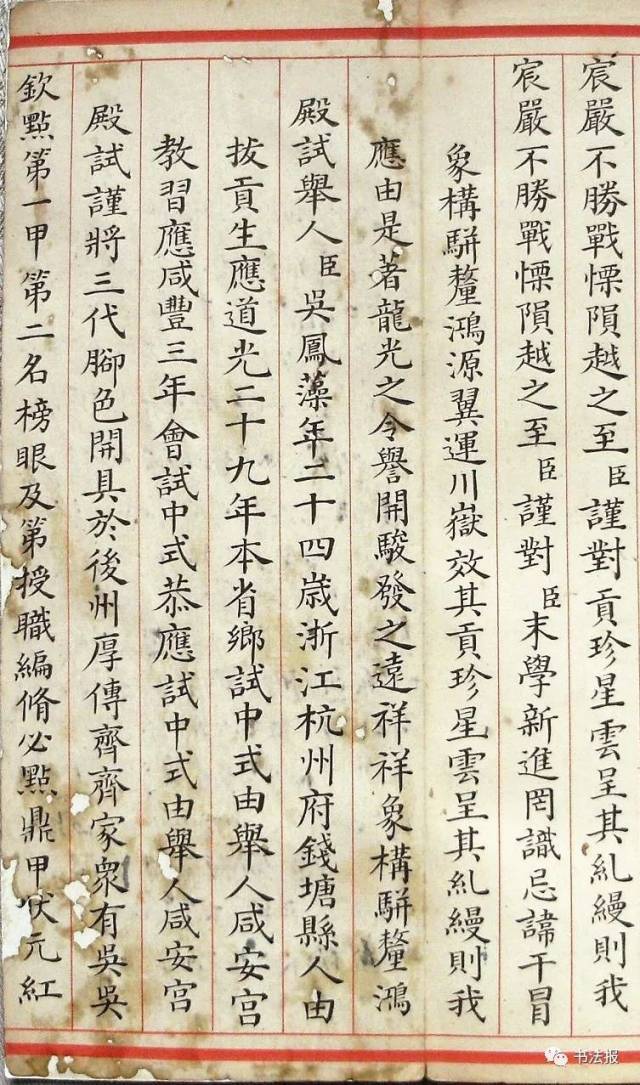 宸嚴不勝戰慄隕越之至臣謹對貢珍星雲呈其糺縵則我
宸嚴不勝戰慄隕越之至臣謹對臣末學新進罔識忌諱干冒
象構駢釐鴻源翼運川嶽效其貢珍星雲呈其糺縵則我
應由是著龍光之令譽開駿發之遠祥祥象構駢釐鴻
殿試舉人臣吳鳳藻年二十四歲浙江杭州府錢塘縣人由
拔貢生應道光二十九年本省鄉試中式由舉人咸安宮
教習應咸豐三年會試中式恭應試中式由舉人咸安宮
殿試謹將三代腳色開具於後州厚傳齊齊家衆有吳吳
欽點第一甲第二名榜眼及第授職編脩必點鼎甲狀元紅
书法报